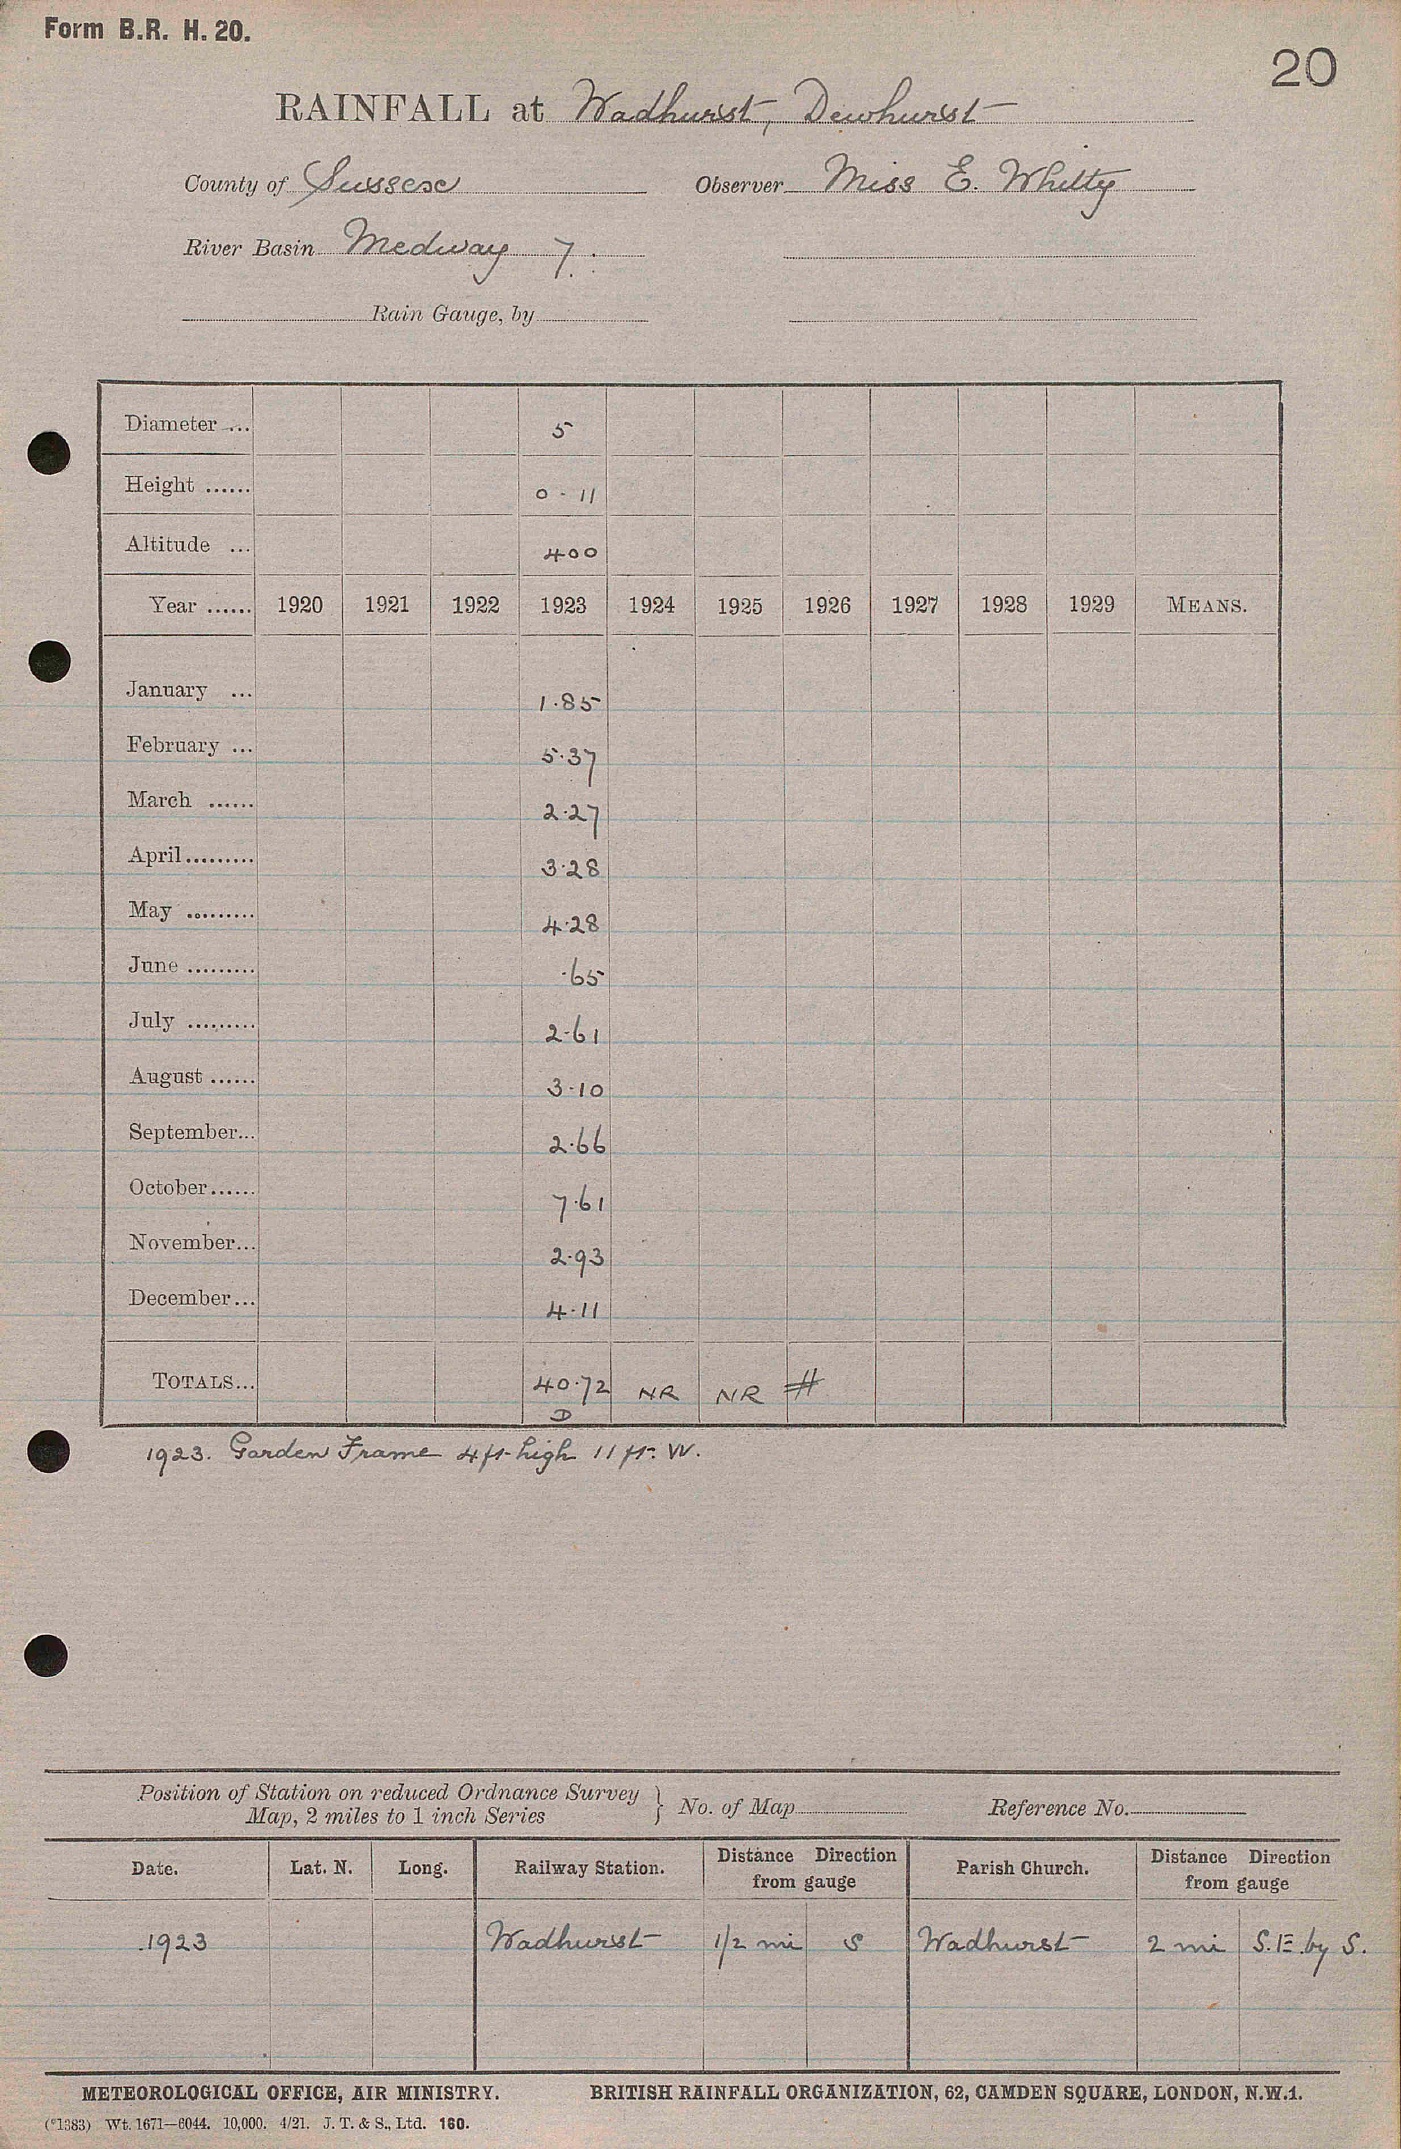 Form B.R. H. 20.
20
RAINFALL at Wadhurst, Dewhurst
County of Sussex Observer Miss E. Whitty
River Basin Medway 7.
Rain Gauge, by
Diameter ... 5
Height ...... 0 - 11
Altitude ... 400
Year ...... 1920 1921 1922 1923 1924 1925 1926 1927 1928 1929 MEANS.
January ... 1.85
February ... 5.37
March ...... 2.27
April ......... 3.28
May ......... 4.28
June ......... .65
July ......... 2.61
August ...... 3.10
September... 2.66
October...... 7.61
November... 2.93
December... 4.11
TOTALS... 40.72 NR NR #
D
1923. Garden Frame 4 ft. high 11 ft. W.
Position of Station on reduced Ordnance Survey
Map, 2 miles to 1 inch Series } No. of Map Reference No.
Date. Lat. N. Long. Railway Station. Distance Direction from gauge Parish Church. Distance Direction from gauge
1923 Wadhurst 1/2 mi S Wadhurst 2 mi S.E. by S.
METEOROLOGICAL OFFICE, AIR MINISTRY. BRITISH RAINFALL ORGANIZATION, 62, CAMDEN SQUARE, LONDON, N.W.1.
(*1383) Wt. 1671—6044. 10,000. 4/21. J. T. & S., Ltd. 160.